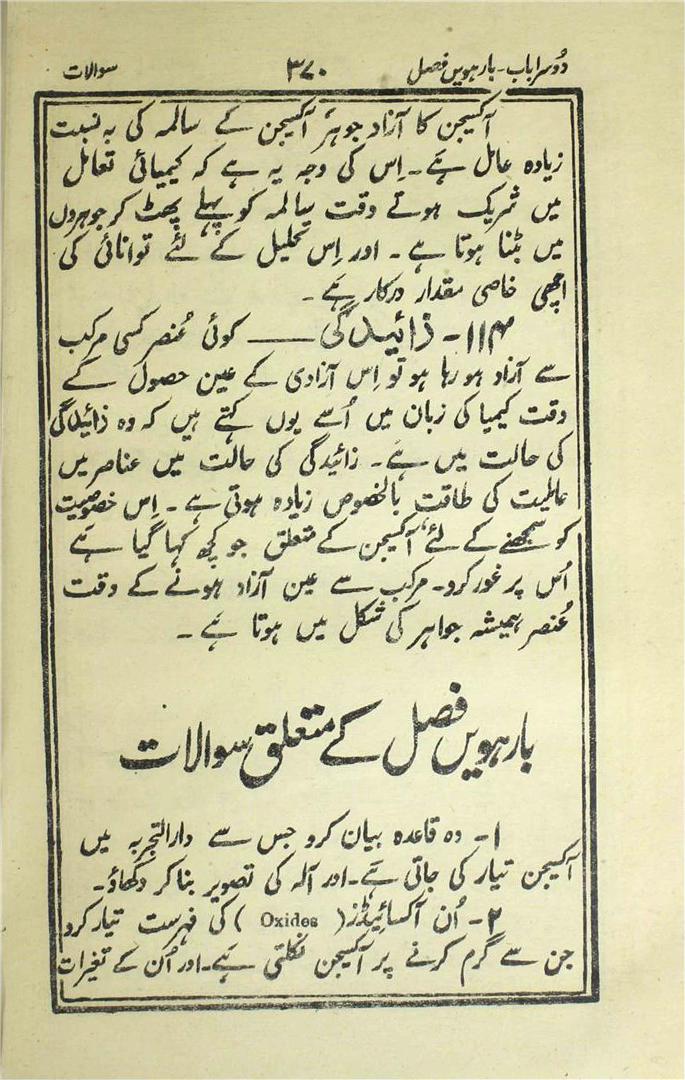 دُوسرا باب - بارہویں فصل ۳۷۰ سوالات
آکسیجن کا آزاد جوہر آکسیجن کے سالمہ کی بہ نسبت
زیادہ عامل ہَے۔ اِس کی وجہ یہ ہے کہ کیمیائی تعامل
میں شریک ہوتے وقت سالمہ کو پہلے پھٹ کر جوہروں
میں بٹنا ہوتا ہے۔ اور اِس تحلیل کے لئے توانائی کی
اچھی خاصی مقدار درکار ہَے۔
۱۱۴- زائیدگی ـــــ کوئی عُنصر کسی مرکب
سے آزاد ہو رہا ہو تو اِس آزادی کے عین حصول کے
وقت کیمیا کی زبان میں اُسے یوں کہتے ہیں کہ وہ زائیدگی
کی حالت میں ہَے۔ زائیدگی کی حالت میں عناصر میں
عاملیت کی طاقت بالخصوص زیادہ ہوتی ہے۔ اِس خصوصیت
کو سمجھنے کے لئے، آکسیجن کے متعلق جو کچھ کہا گیا ہَے
اُس پر غور کرو۔ مرکب سے عین آزاد ہونے کے وقت
عُنصر ہمیشہ جواہر کی شکل میں ہوتا ہَے۔
بارہویں فصل کے متعلق سوالات
۱- وہ قاعدہ بیان کرو جس سے دارالتجربہ میں
آکسیجن تیار کی جاتی ہَے۔ اور آلہ کی تصویر بنا کر دکھاؤ۔
۲- اُن آکسائیڈز (Oxides) کی فہرست تیار کرو
جن سے گرم کرنے پر آکسیجن نکلتی ہَے۔ اور اُن کے تغیرات